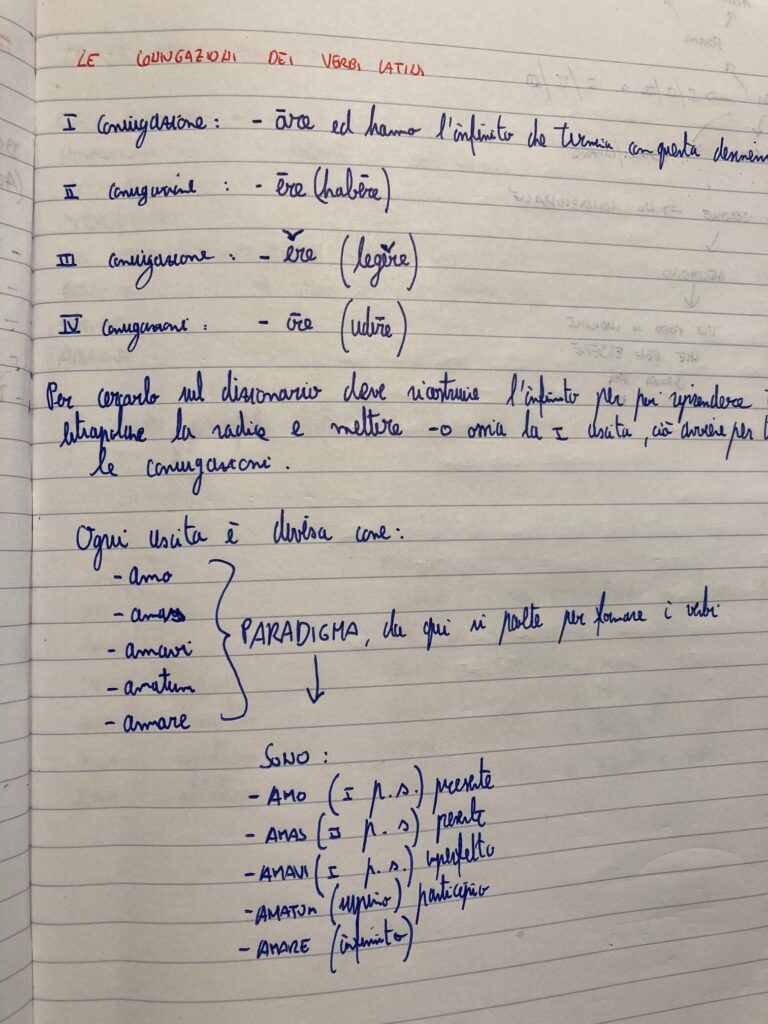 LE CONIUGAZIONI DEI VERBI LATINI
I Coniugazione : - āre ed hanno l'infinito che termina con questa desinen
II coniugazione : - ēre (habēre)
III coniugazione : - ĕre (legĕre)
IV coniugazioni : - īre (udīre)
Per cercarlo sul dizionario deve ricostruire l'infinito per poi riprendere
estrapolare la radice e mettere -o ossia la I uscita, ciò avviene per t
le coniugazioni.
Ogni uscita è divisa come:
- amo
- amas
- amavi
- amatum
- amare
PARADIGMA, da qui si parte per formare i verbi
SONO :
- AMO (I p.s.) presente
- AMAS (II p.s) presente
- AMAVI (I p.s.) imperfetto
- AMATUM (supino) participio
- AMARE (infinito)